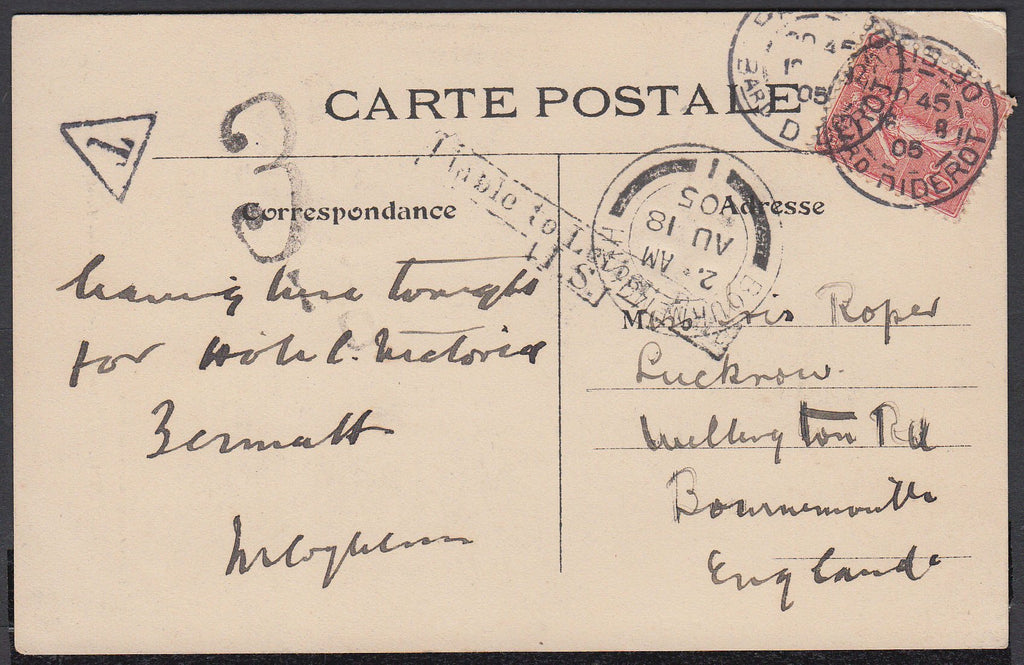 CARTE POSTALE
T
3
Correspondance
Adresse
Liable to
H.S.
BOURNEMOUTH
1
2. AM
AU 18
05
45
05
DIDEROT
leaving here tonight
for Hotel Victoria
Zermatt
M
Roper
Lucknow
Wellington Rd
Bournemouth
England